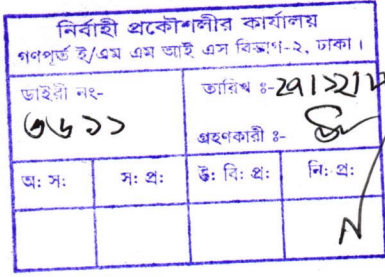 নির্বাহী প্রকৌশলীর কার্যালয়
গণপূর্ত ই/এম এম আই এস বিভাগ-২, ঢাকা।
ডাইরী নং-
তারিখ ঃ-
৩৬১১
গ্রহণকারী ঃ-
অঃ সঃ
সঃ প্রঃ
উঃ বিঃ প্রঃ
নিঃ প্রঃ